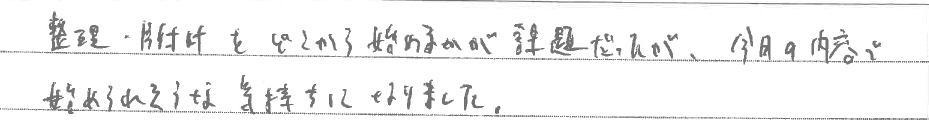 整理・片付けをどこから始めるかが課題だったが、今日の内容で
始められそうな気持ちになりました。